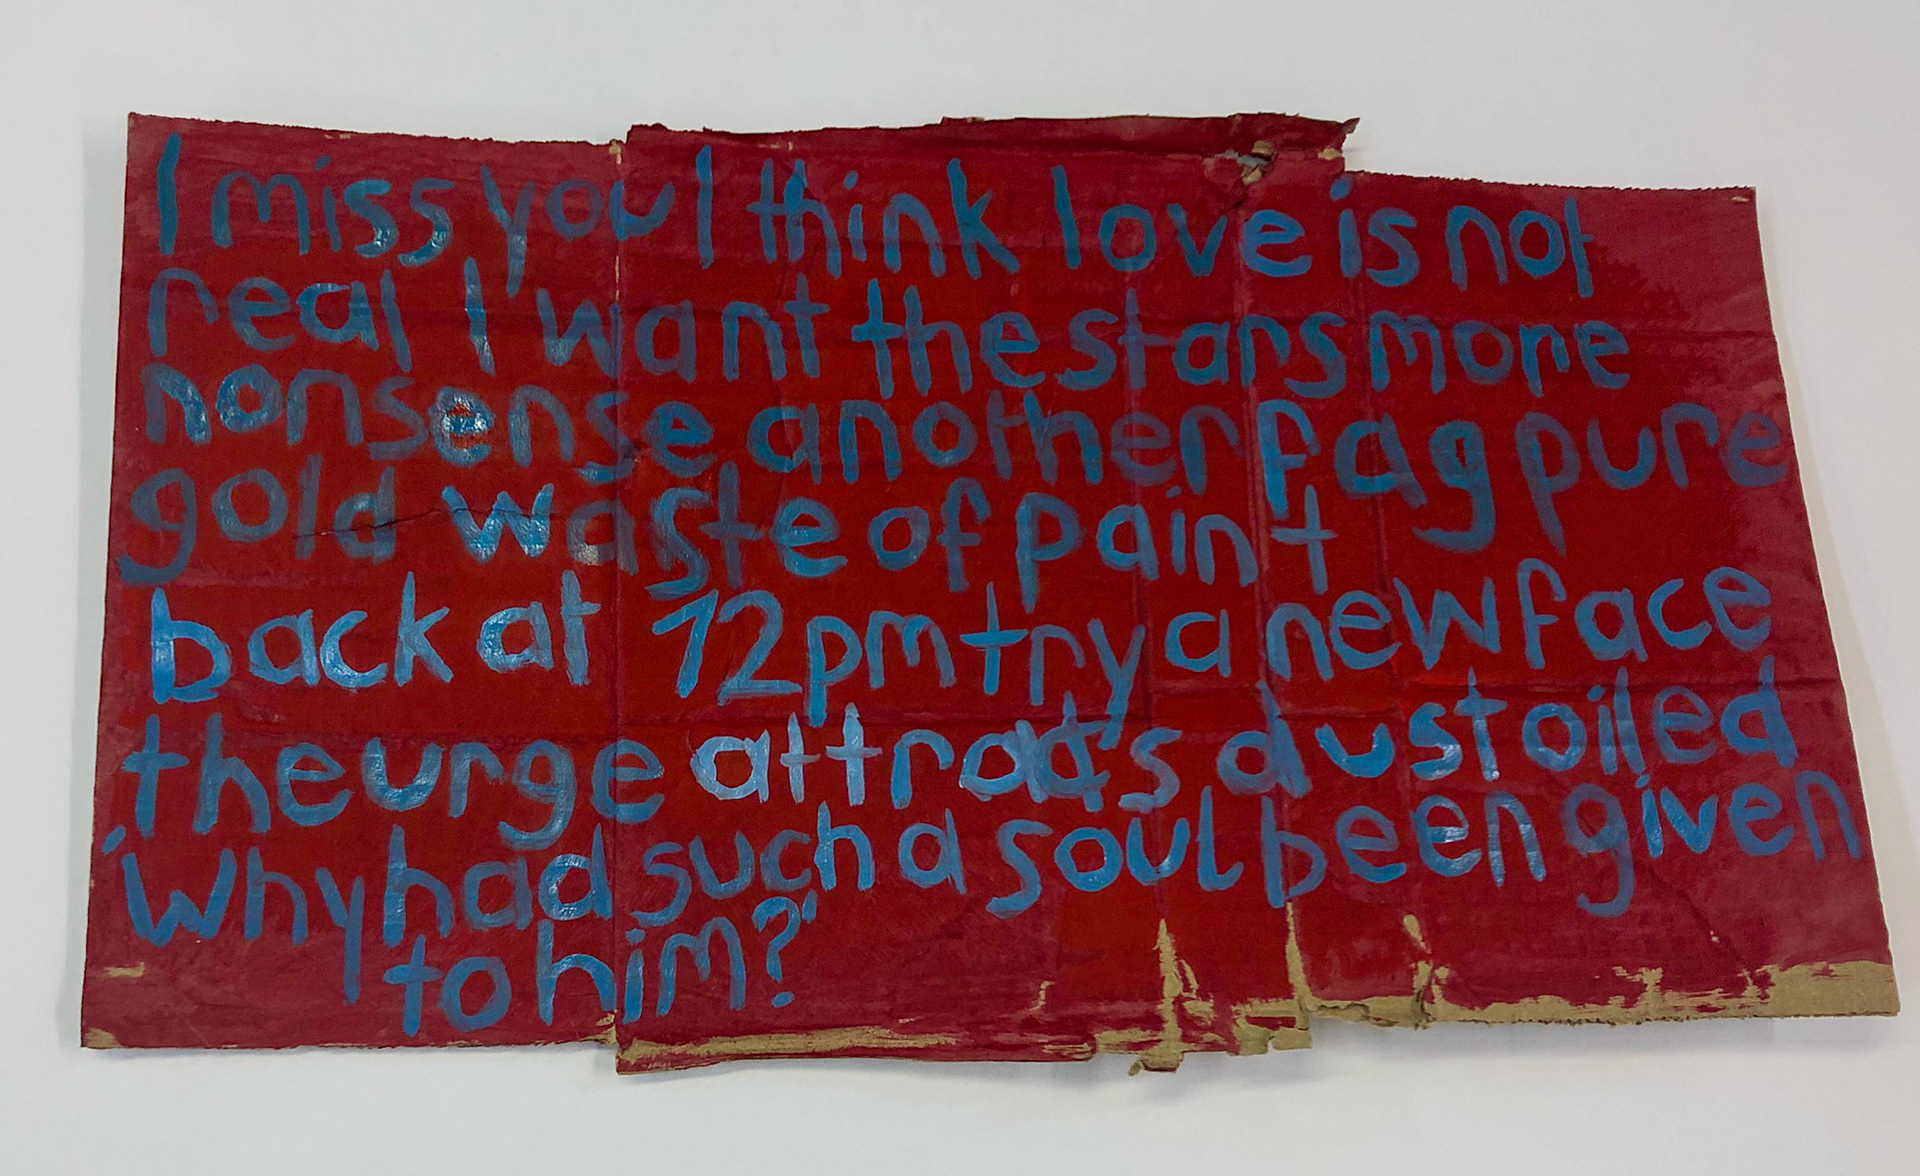 I miss you I think love is not
real I want the stars more
nonsense another fag pure
gold waste of paint
back at 12pm try a new face
the urge attracts dust oiled
'Why had such a soul been given
to him?'